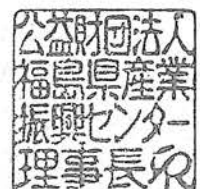 公益財団法人
福島県産業
振興センター
理事長印